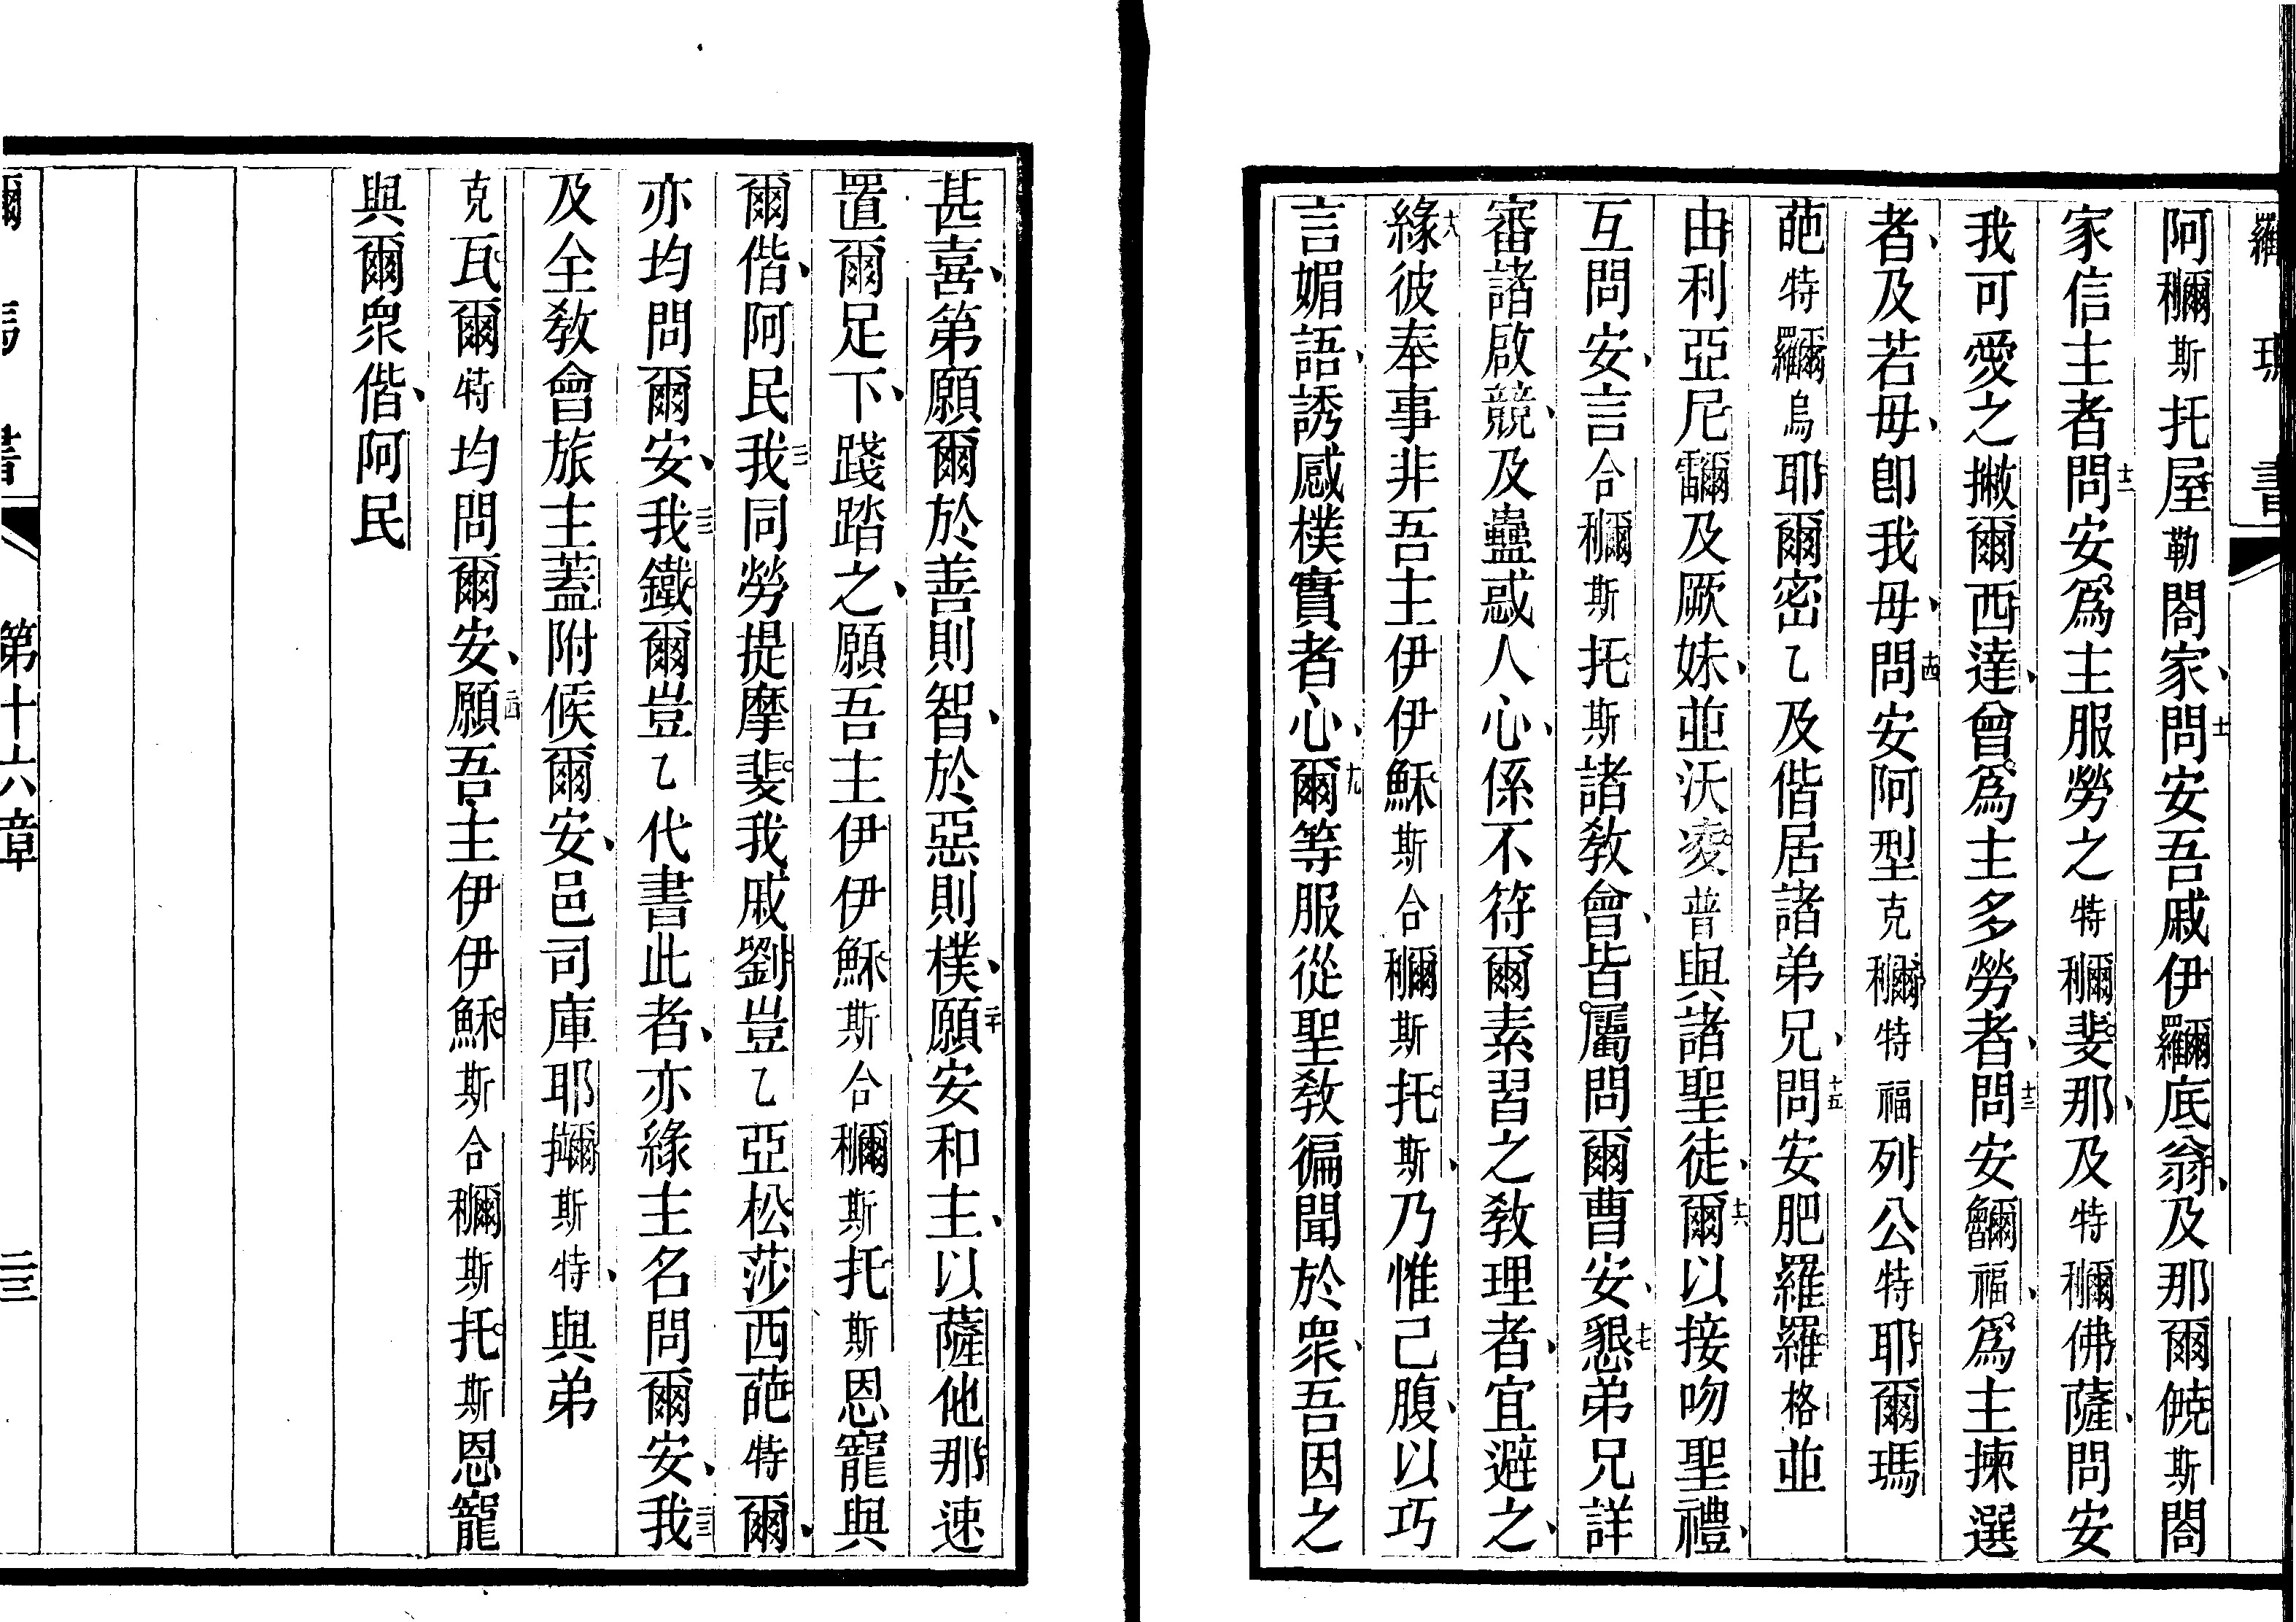 羅瑪書
阿穪斯托屋勒閤家、十一問安吾戚伊儸底翁、及那爾僥斯閤
家信主者十二問安爲主服勞之特穪斐那、及特穪佛薩、問安
我可愛之撇爾西達、曾爲主多勞者、十三問安福、爲主揀選
者、及若母、卽我母、十四問安阿型克穪特福列公特耶爾瑪
葩特烏耶爾密乙及偕居諸弟兄、十五問安肥羅羅格並
由利亞尼及厥妹、並沃凌普與諸聖徒、十六爾以接吻聖禮、
互問安、言合穪斯托斯諸敎會、皆屬問爾曹安、十七懇弟兄詳
審諸啟競、及蠱惑人心、係不符爾素習之敎理者、宜避之、
十八緣彼奉事非吾主伊伊穌斯合穪斯托斯、乃惟己腹、以巧
言媚語、誘感樸實者心、十九爾等服從聖敎徧聞於眾、吾因之
甚喜、第願爾於善則智、於惡則樸、二十願安和主、以薩他那速
置爾足下、踐踏之、願吾主伊伊穌斯合穪斯托斯恩寵與
爾偕、阿民二一我同勞提摩斐我戚劉豈乙亞松莎西葩特爾、
亦均問爾安、二二我鐵爾豈乙代書此者、亦緣主名問爾安、二三我
及全敎會旅主蓋附候爾安、邑司庫耶斯特、與弟
克瓦爾特均問爾安、二四願吾主伊伊穌斯合穪斯托斯恩寵
與爾眾偕、阿民
書
第十六章
二三